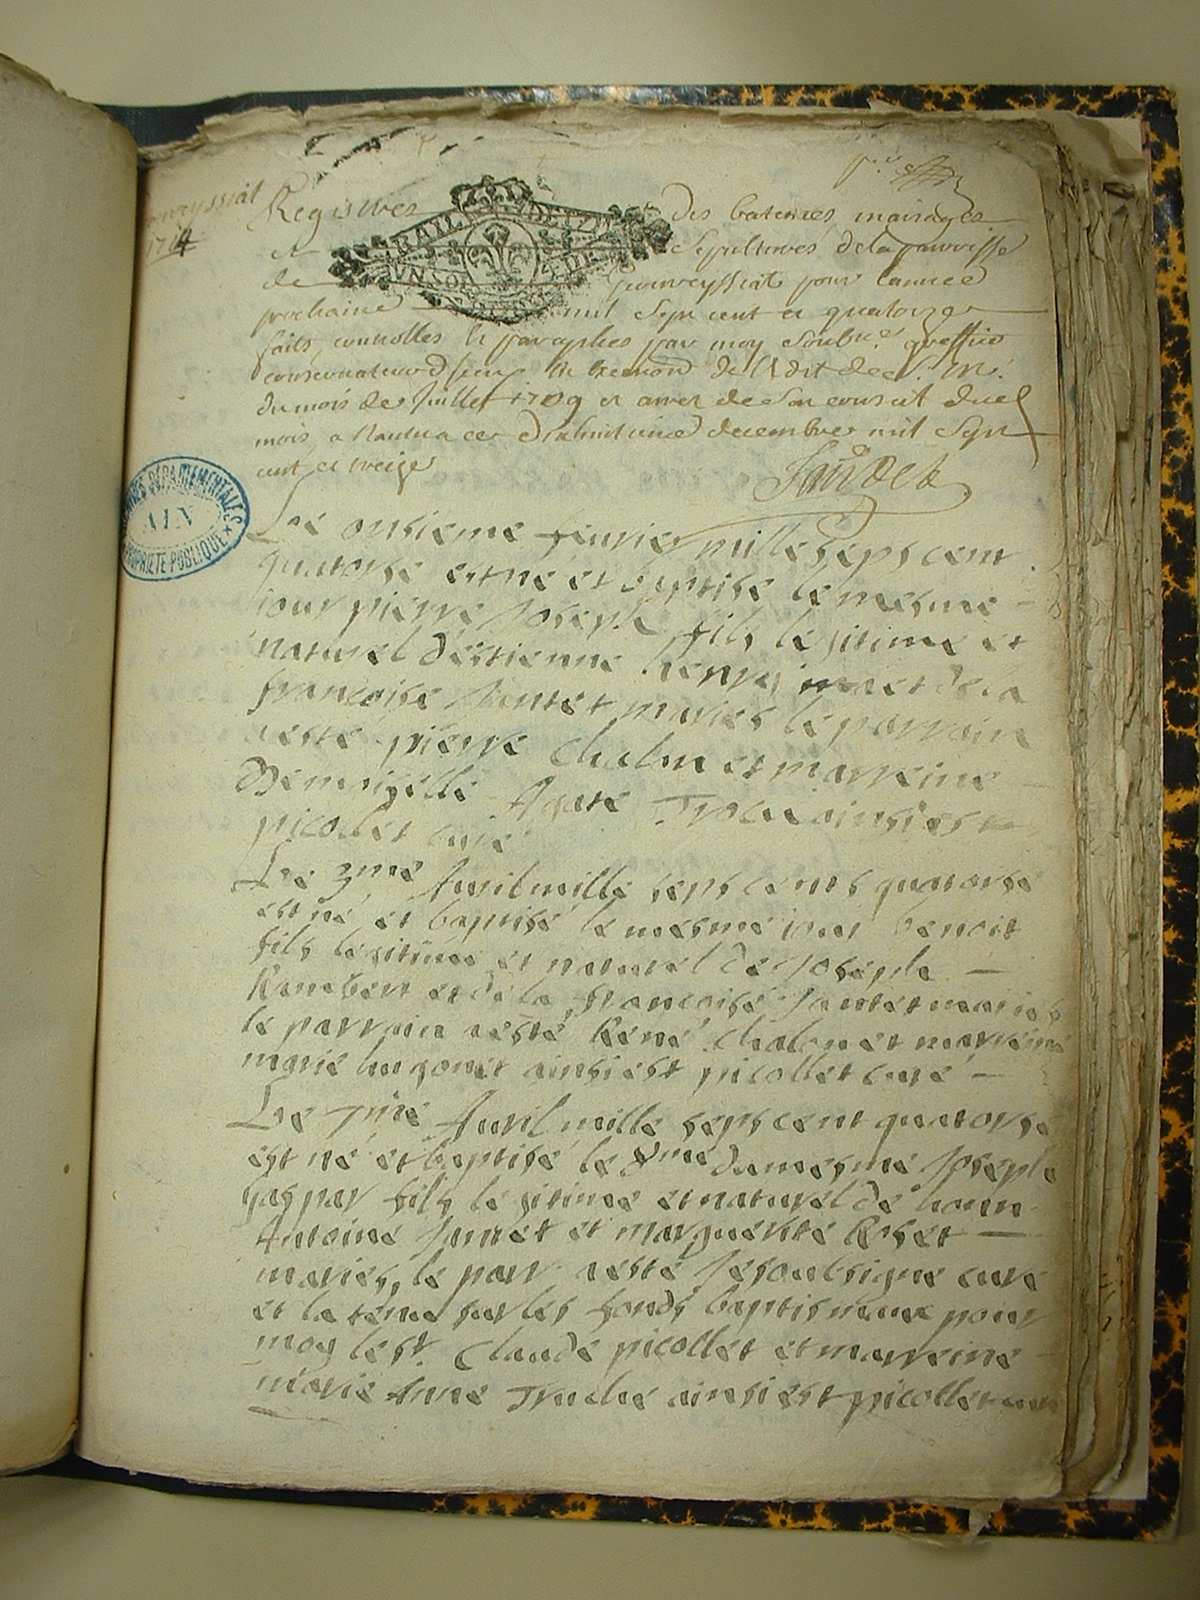 pouveyssiat
1714
Registres des batemes, mariages
et Sepultures de la parroisse
de pouveyssiat pour l'année
prochaine mil sept cent et quatorze
faits, controlles et paraphes par moy Soubne. greffier
conservateur de l'edit de
du mois de Juillet 1709 et arret de Son conseil du
mois, a Nantua ce decembre mil Sept
cent et treize
ARCHIVES DÉPARTEMENTALES
AIN
PROPRIÉTÉ PUBLIQUE
Le onsieme feurier mille seps cent
quatorse est ne et baptise le mesme
iour pierre Joseph fils legitime et
naturel d'estienne henry et de la
francoise Juntet maries le parrain
a esté pierre Chalon et marreine
Demoiselle Agate Trocu ainsi est
picollet curé
Le 3me Auril mille seps cents quatorse
est né et baptisé le mesme iour benoit
fils legitime et naturel de Joseph
Rambert et de la francoise Juntet maries
le parrain a esté René Chalon et marreine
marie hugonet ainsi est picollet curé
Le 7me Auril mille seps cent quatorse
est né et baptisé le 8me du mesme Joseph
gaspar fils legitime et naturel de honn
Antoine Juntet et marguerite Roset
maries, le parr a esté Je soubsigné curé
et la tenu sur les fonds baptismaux pour
moy le sr. Claude picollet et marreine
marie Anne Troche ainsi est picollet curé